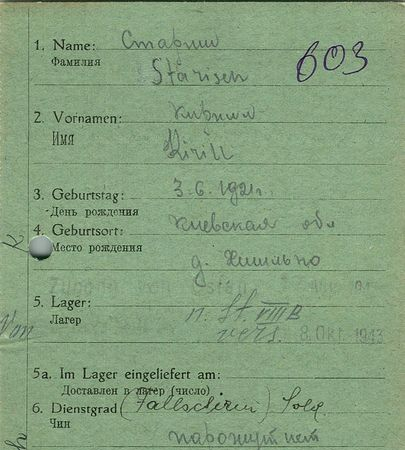 603
1. Name: Старии
Фамилия Starisch
2. Vornamen: Кирилл
Имя Kirill
3. Geburtstag: 3.6.1921г.
День рождения
4. Geburtsort: Киевская обл
Место рождения
д.
Zugang von Osten
5. Lager: n. St. VIII B
Лагерь vers. 8. Okt. 1943
Von
5a. Im Lager eingeliefert am:
Доставлен в лагер (число)
6. Dienstgrad (Fallschirm) Sold
Чин парашутист